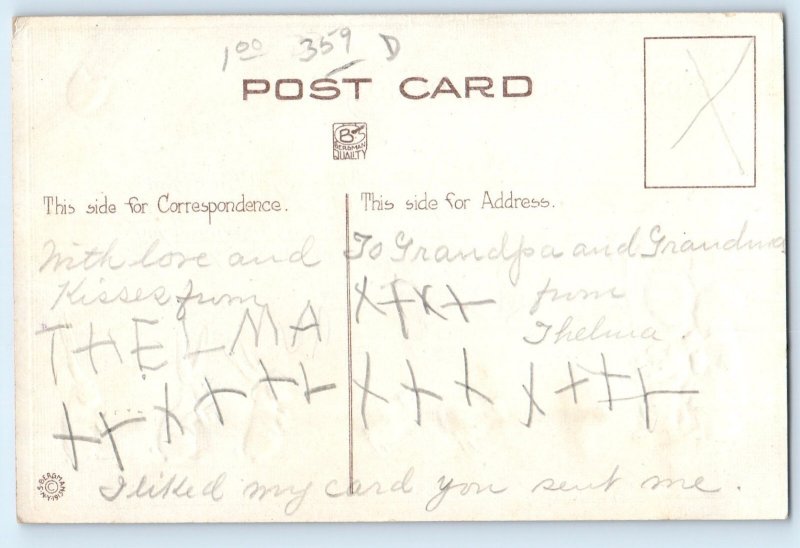 1 00 359 D
POST CARD
BERGMAN
QUALITY
This side for Correspondence.
This side for Address.
With love and
Kisses from
THELMA
X X X X X X X
To Grandpa and Grandma
X X X X from
Thelma.
X X X X X X X
I liked my card you sent me.
S. BERGMAN
N.Y. 1917